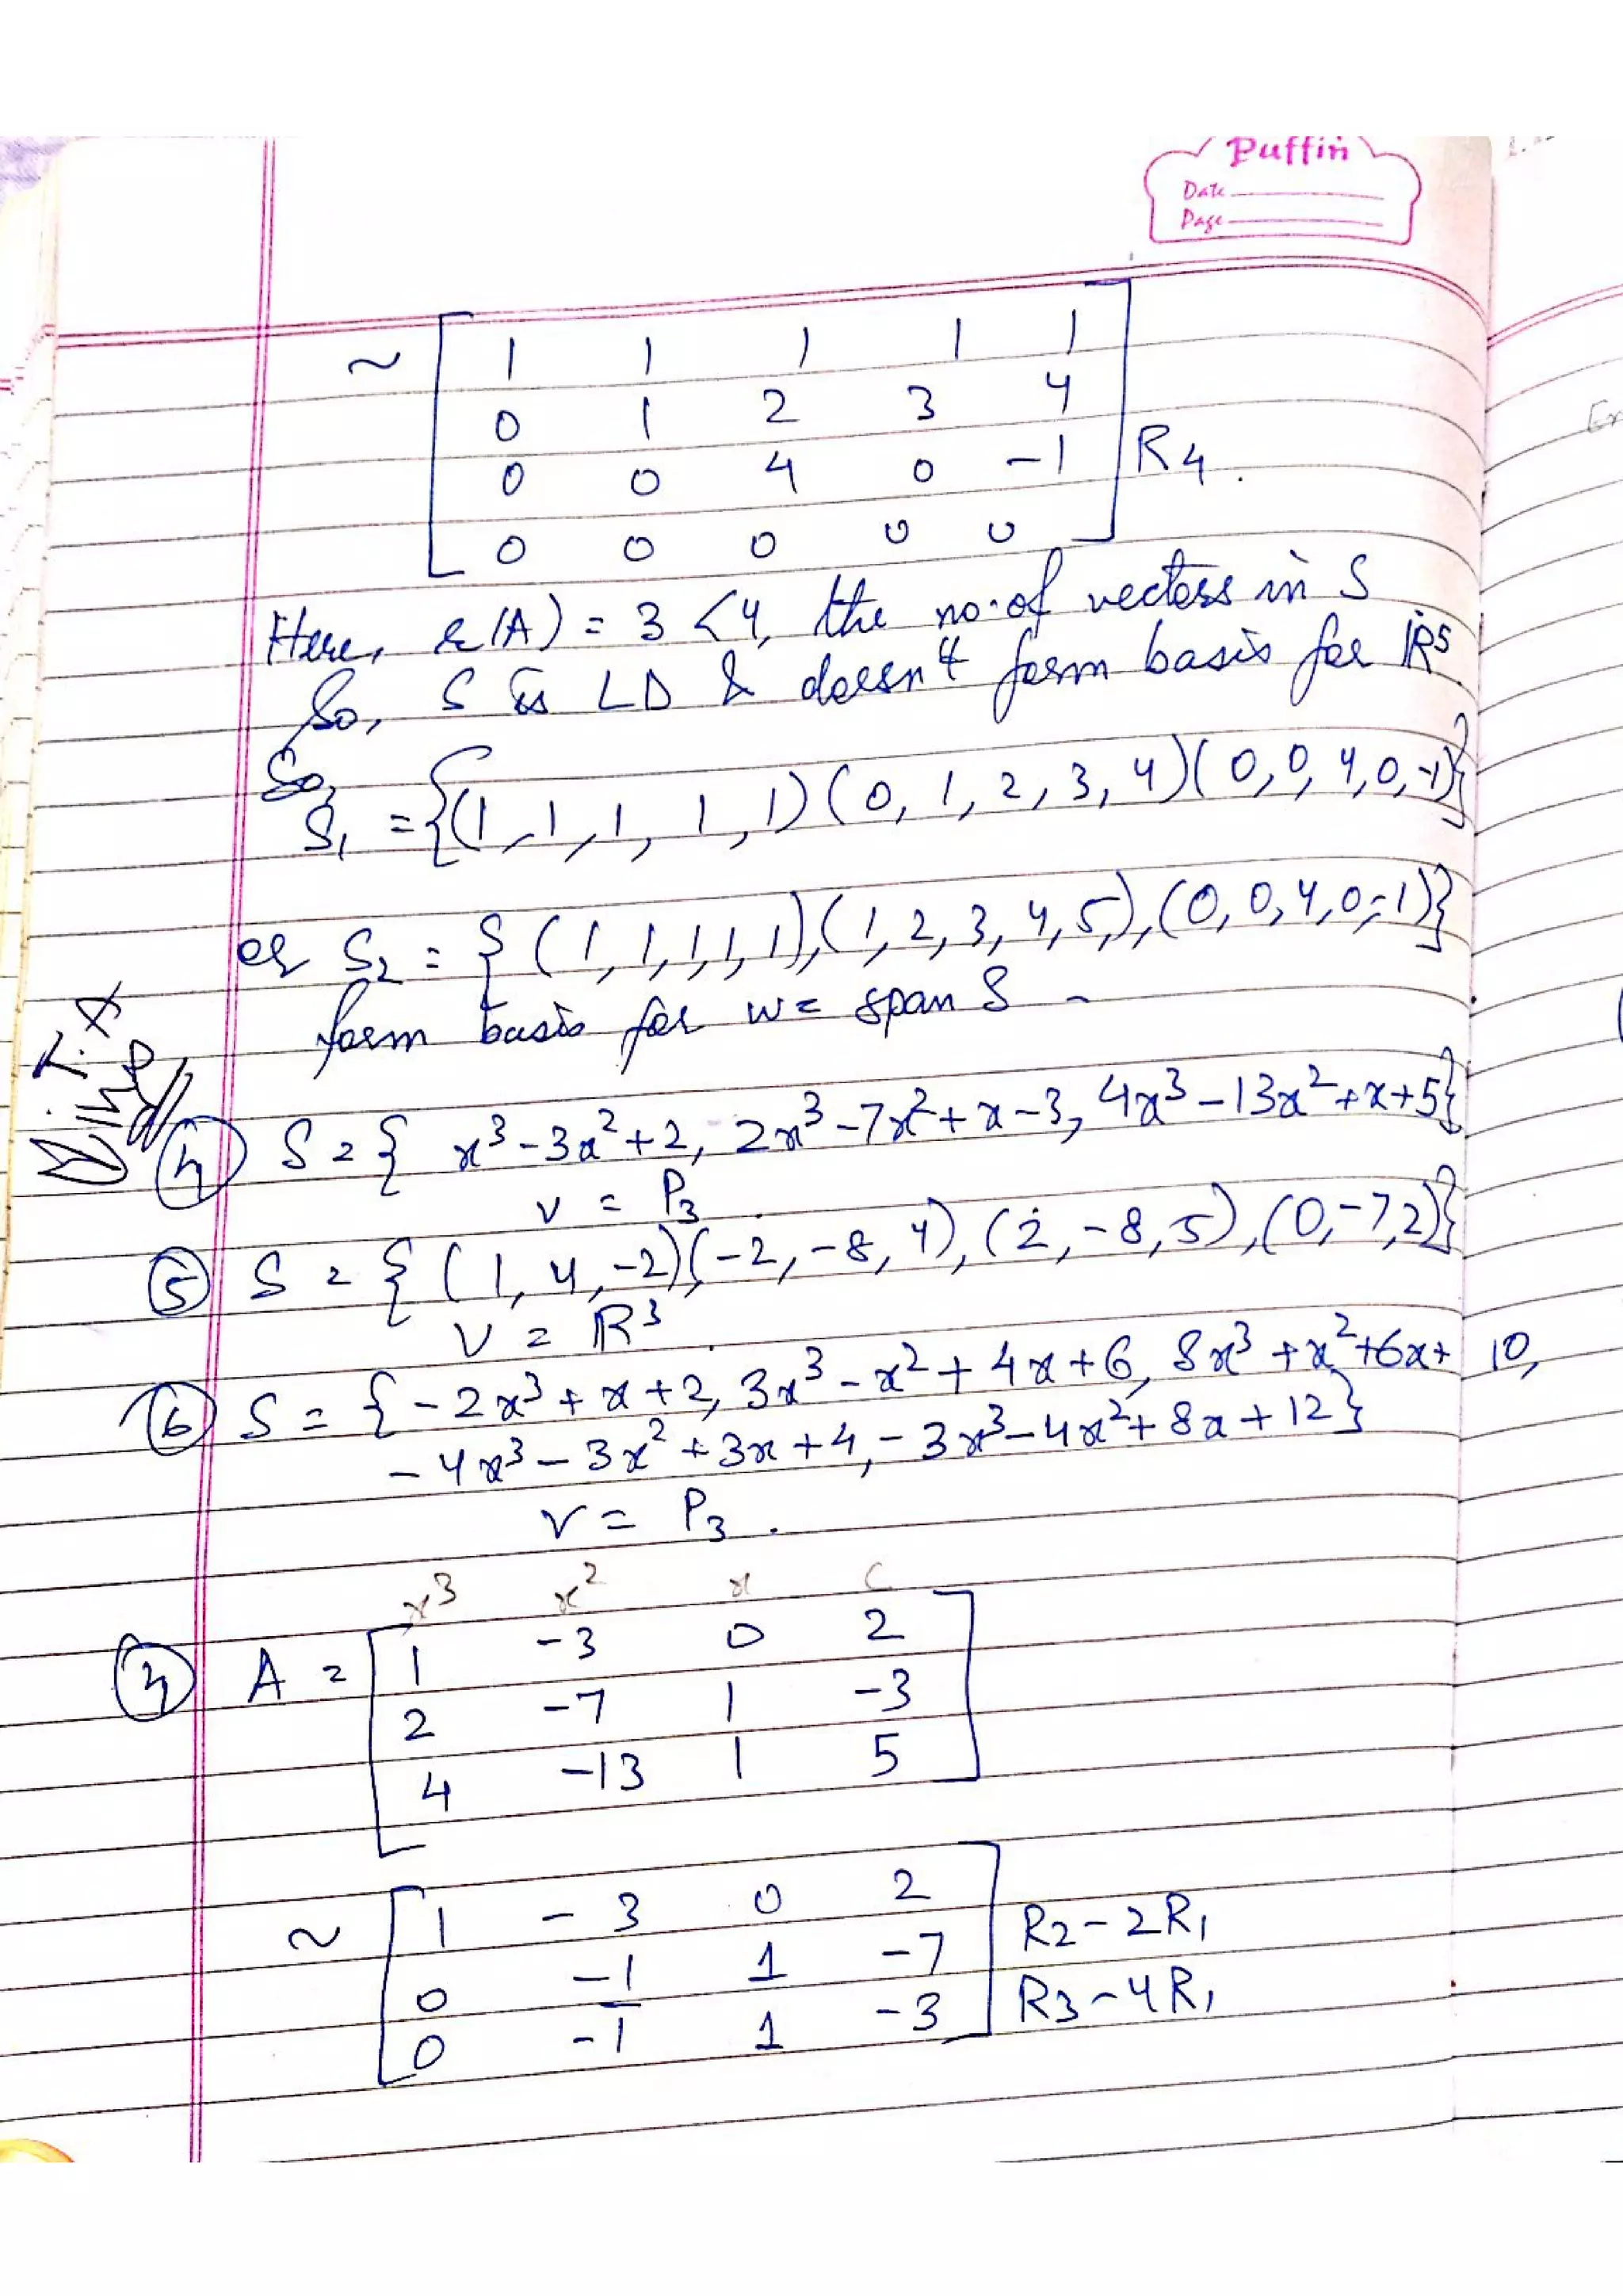 Puffin
Date
Page
~ [ 1 1 1 1 1
0 1 2 3 4
0 0 4 0 -1 ] R4.
0 0 0 0 0
Here, r(A) = 3 < 4, the no. of vectors in S
So, S is LD & doesn't form basis for R⁵.
So,
S₁ = {(1, 1, 1, 1, 1) (0, 1, 2, 3, 4) (0, 0, 4, 0, -1)}
or S₂ = { (1, 1, 1, 1, 1), (1, 2, 3, 4, 5,), (0, 0, 4, 0, -1)}
form basis for w = span S
④ S = { x³ - 3x² + 2, 2x³ - 7x² + x - 3, 4x³ - 13x² + x + 5}
V = P₃.
⑤ S = { (1, 4, -2) (-2, -8, 4), (2, -8, 5), (0, -7, 2)}
V = R³
⑥ S = { -2x³ + x + 2, 3x³ - x² + 4x + 6, 8x³ + x² + 6x + 10,
- 4x³ - 3x² + 3x + 4, - 3x³ - 4x² + 8x + 12 }
V = P₃.
x³ x² x c
④ A = [ 1 -3 0 2
2 -7 1 -3
4 -13 1 5 ]
~ [ 1 -3 0 2
0 -1 1 -7 ] R2 - 2R₁
0 -1 1 -3 R3 - 4R₁